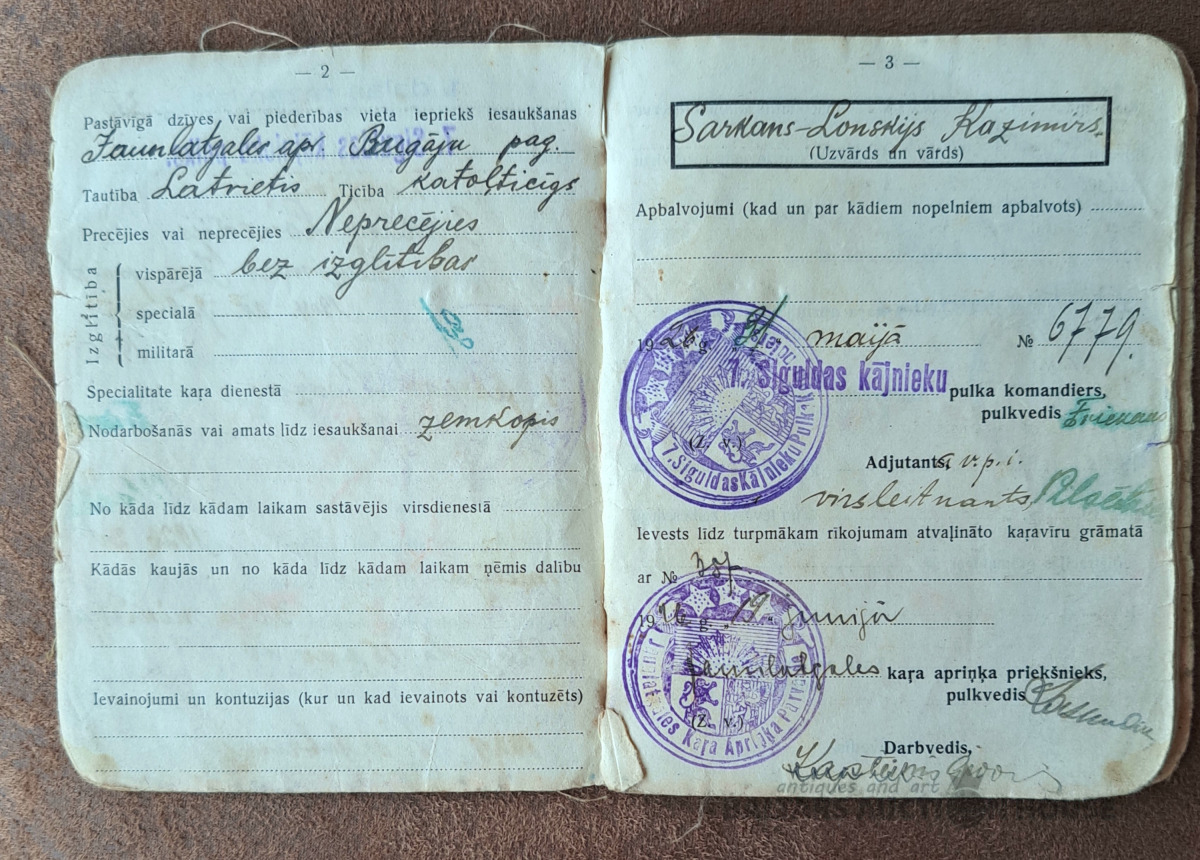 — 2 —
Pastāvīgā dzīves vai piederības vieta iepriekš iesaukšanas
Jaunlatgales apr. Bugāju pag.
Tautība Latvietis Ticība katoļticīgs
Precējies vai neprecējies Neprecējies
Izglītība
vispārējā bez izglītības
specialā
militarā
Specialitate kaŗa dienestā
Nodarbošanās vai amats līdz iesaukšanai zemkopis
No kāda līdz kādam laikam sastāvējis virsdienestā
Kādās kaujās un no kāda līdz kādam laikam ņēmis dalību
Ievainojumi un kontuzijas (kur un kad ievainots vai kontuzēts)
— 3 —
Sarkans-Lonskijs Kazimirs.
(Uzvārds un vārds)
Apbalvojumi (kad un par kādiem nopelniem apbalvots)
1926 g. maijā № 6779.
7. Siguldas kājnieku pulka komandiers,
pulkvedis
(Z. v.)
7. Siguldas Kājnieku Pulks
Adjutants, v. p. i.
virsleitnants,
Ievests līdz turpmākam rīkojumam atvaļināto kaŗavīru grāmatā
ar №
1926 g. "19." junijā
Jaunlatgales kaŗa apriņķa priekšnieks,
pulkvedis
(Z. v.)
Jaunlatgales Kaŗa Apriņķa Pārvalde
Darbvedis,
antiques and art